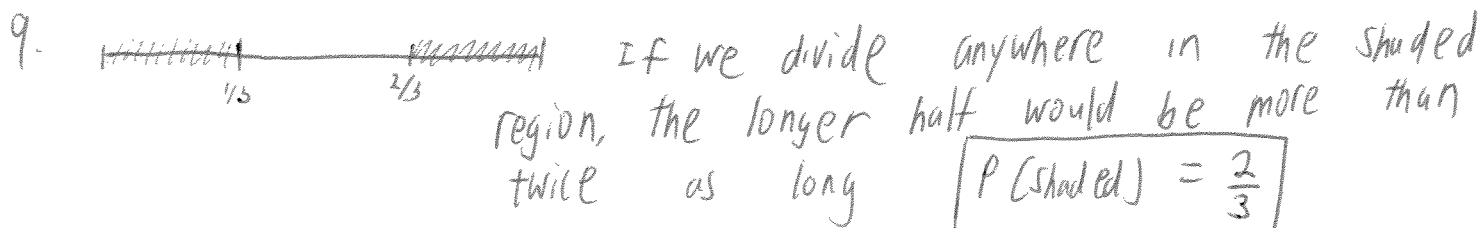 9.
If we divide anywhere in the shaded
1/3 2/3
region, the longer half would be more than
twice as long P(shaded) = 2/3